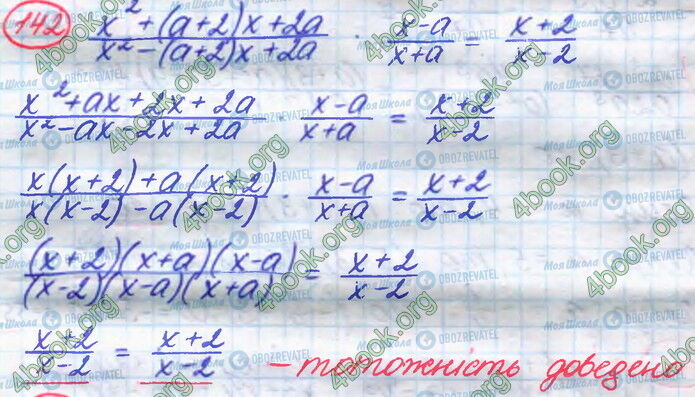 142 (x² + (a+2)x + 2a)/(x² - (a+2)x + 2a) · (x-a)/(x+a) = (x+2)/(x-2)
(x² + ax + 2x + 2a)/(x² - ax - 2x + 2a) · (x-a)/(x+a) = (x+2)/(x-2)
(x(x+2) + a(x+2))/(x(x-2) - a(x-2)) · (x-a)/(x+a) = (x+2)/(x-2)
((x+2)(x+a)(x-a))/((x-2)(x-a)(x+a)) = (x+2)/(x-2)
(x+2)/(x-2) = (x+2)/(x-2) - тотожність доведено